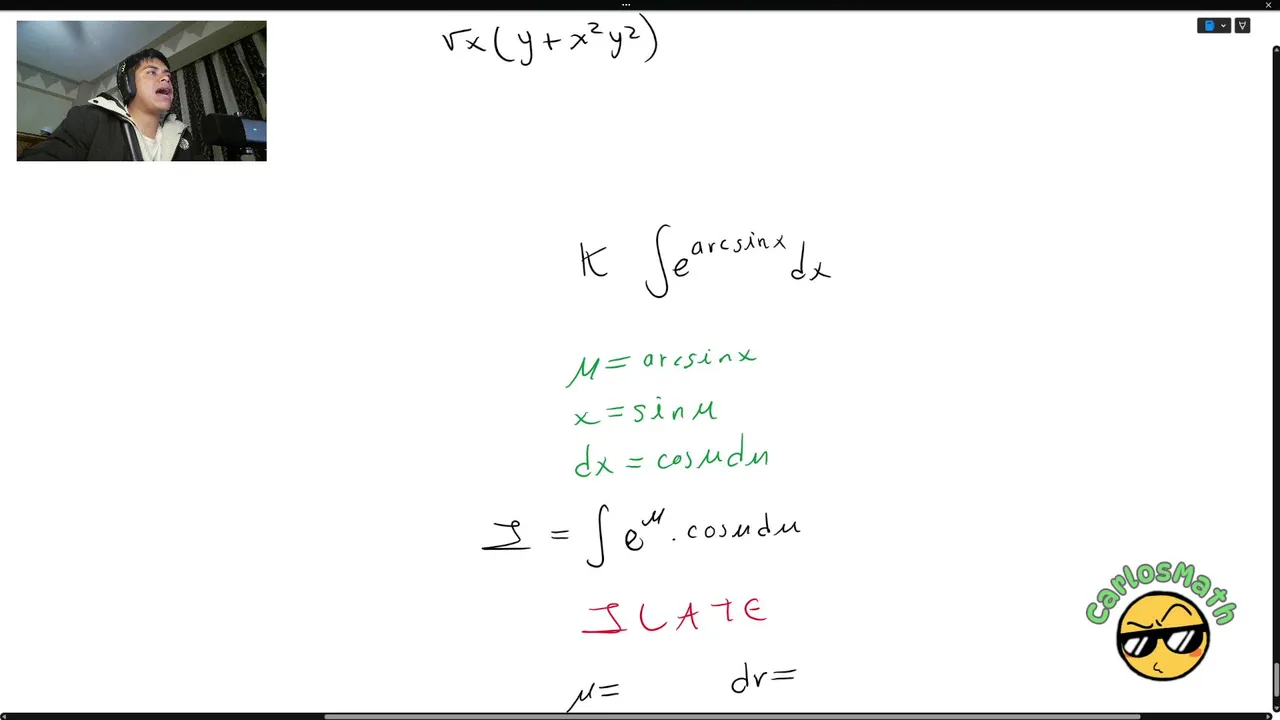 √x(y+x²y²)
K ∫e^arcsinx dx
μ=arcsinx
x=sinμ
dx=cosμdμ
I = ∫e^μ.cosμdμ
ILATE
μ= dv=
CarlosMath